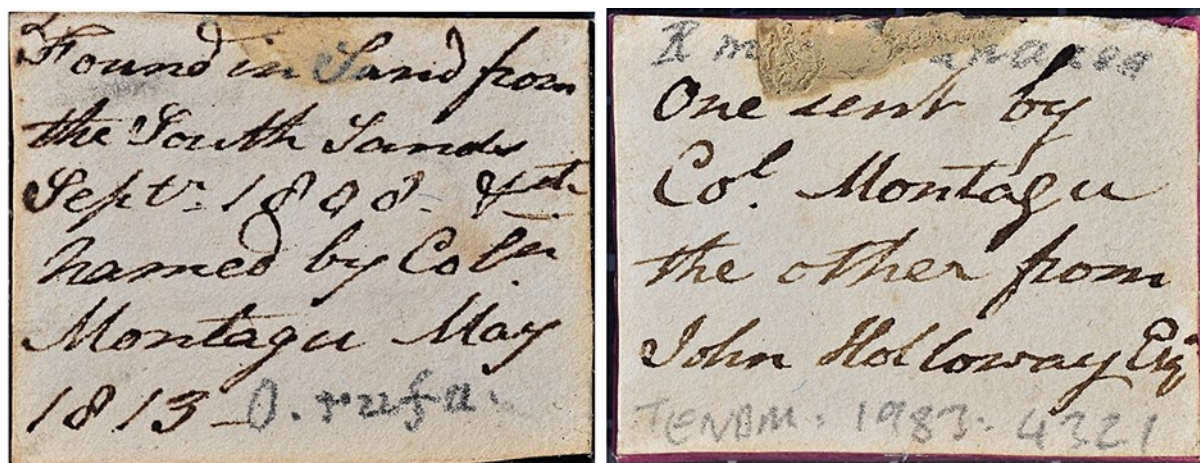 Found in Sand from
the South Sands
Septr. 1808.
named by Coln
Montagu May
1813 - O. rufa.
One sent by
Col. Montagu
the other from
John Holloway Esqr
TENBM: 1983. 4321